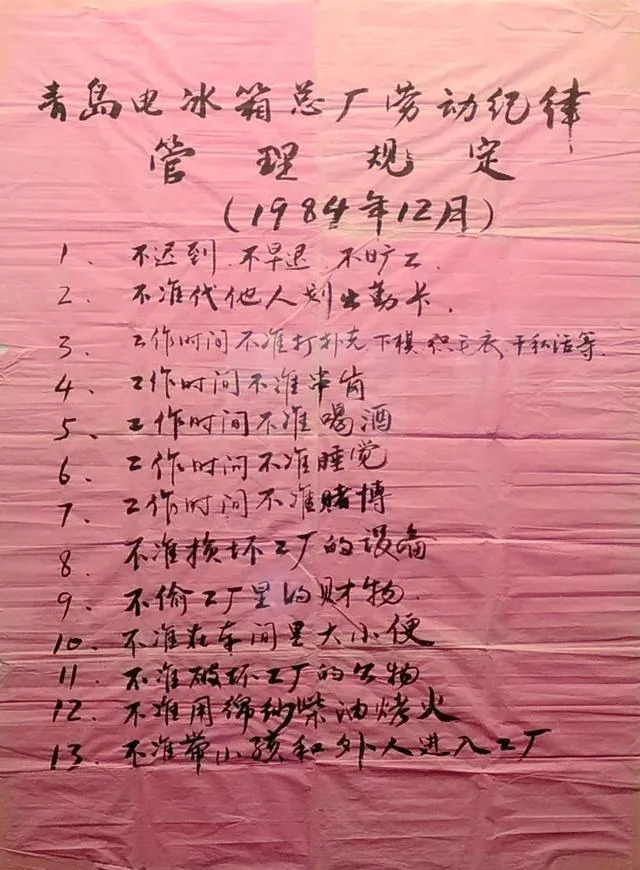 青岛电冰箱总厂劳动纪律
管理规定
(1984年12月)
1、不迟到 不早退 不旷工.
2、不准代他人划出勤卡.
3、工作时间不准打扑克.下棋.织毛衣.干私活等.
4、工作时间不准串岗
5、工作时间不准喝酒
6、工作时间不准睡觉
7、工作时间不准赌博
8、不准损坏工厂的设备
9、不偷工厂里的财物.
10、不准在车间里大小便
11、不准破坏工厂的公物
12、不准用绵纱柴油烤火
13、不准带小孩和外人进入工厂